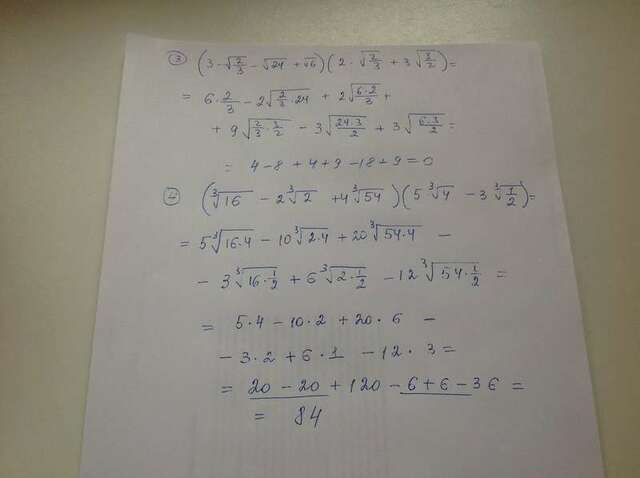 ③ (3·√(2/3) − √24 + √6)(2·√(2/3) + 3√(3/2)) =
= 6·2/3 − 2√(2/3·24) + 2√(6·2/3) +
+ 9√(2/3·3/2) − 3√(24·3/2) + 3√(6·3/2) =
= 4 − 8 + 4 + 9 − 18 + 9 = 0
④ (∛16 − 2∛2 + 4∛54)(5·∛4 − 3∛(1/2)) =
= 5∛(16·4) − 10∛(2·4) + 20∛(54·4) −
− 3∛(16·1/2) + 6∛(2·1/2) − 12∛(54·1/2) =
= 5·4 − 10·2 + 20·6 −
− 3·2 + 6·1 − 12·3 =
= 20 − 20 + 120 − 6 + 6 − 36 =
= 84